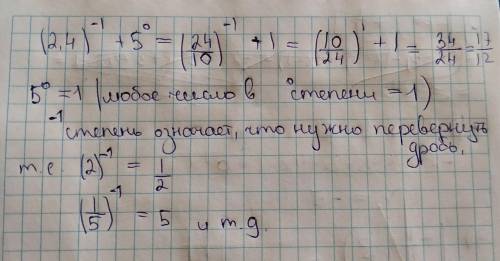 (2,4)⁻¹ + 5⁰ = (24/10)⁻¹ + 1 = (10/24)¹ + 1 = 34/24 = 17/12
5⁰ = 1 (любое число в ⁰степени = 1)
⁻¹степень означает, что нужно перевернуть
дробь,
т.е. (2)⁻¹ = 1/2
(1/5)⁻¹ = 5 и т.д.